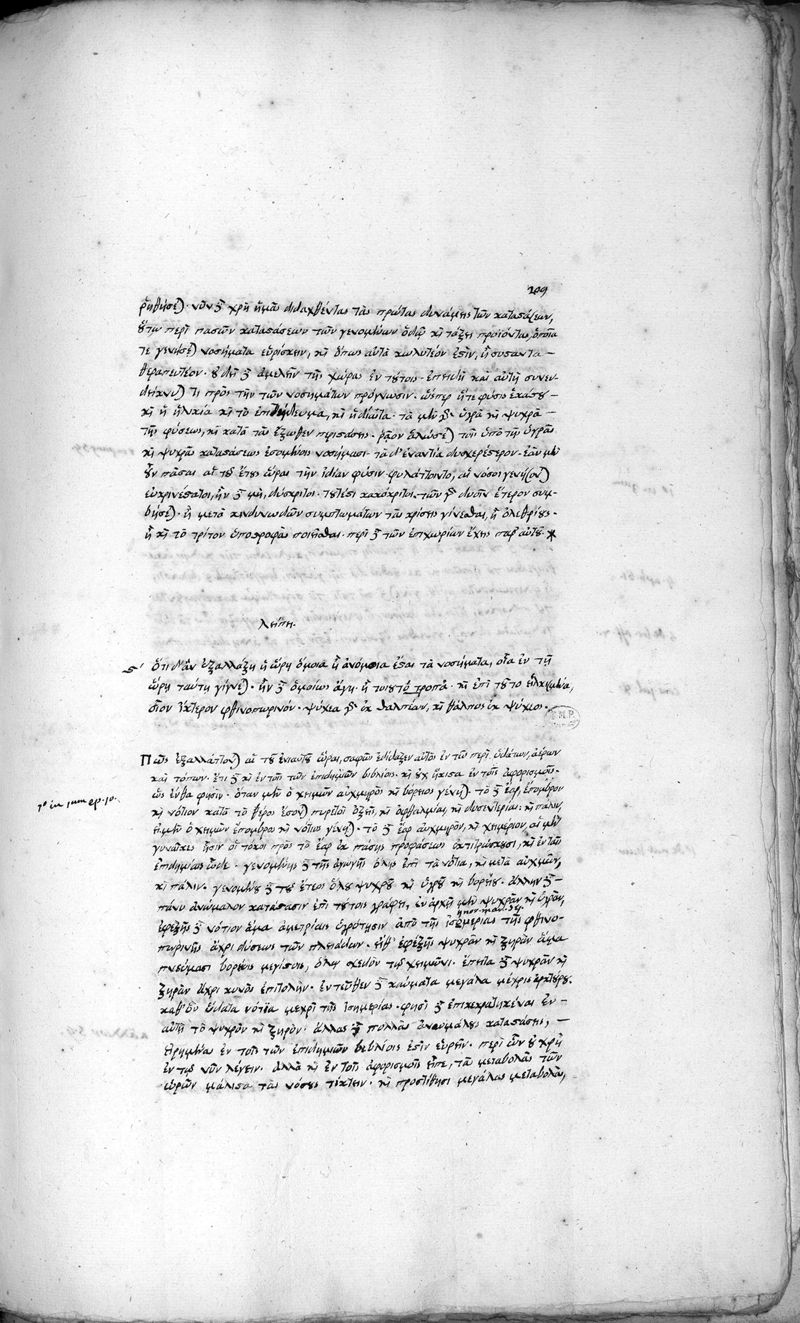 209
ῥηθήσε). νῦν δὲ χρὴ ἡμᾶς διδαχθέντας τὰς πρώτας δυνάμεις τῶν καταστάσεων,
οὕτω περὶ πασῶν καταστάσεων τῶν γενομένων ὁδῷ καὶ τάξει προϊόντας, ὁποῖα
τε γενήσε) νοσήματα εὑρίσκειν, καὶ ὅπως αὐτὰ κωλυτέον ἐστὶν, ἢ συστάντα –
θεραπευτέον. οὐ δεῖ δὲ ἀμελεῖν τῆς χώρας ἐν τούτοις. ἐπειδὴ καὶ αὐτὴ συνεν–
δείκνυ) τι πρὸς τὴν τῶν νοσημάτων πρόγνωσιν. ὥσπερ ἥτε φύσις ἑκάστου –
καὶ ἡ ἡλικία καὶ τὸ ἐπιτήδευμα, καὶ ἡ δίαιτα. τὰ μὲν γὰρ ὑγρὰ καὶ ψυχρὰ –
τῆς φύσεως, καὶ κατὰ τὰς ἔξωθεν περιστάσεις. ῥᾷον ἁλώσε) τοῖς ὑπὸ τῆς ὑγρᾶς
καὶ ψυχρᾶς καταστάσεως ἐσομένοις νοσήμασι. τὰ δ' ἐναντία δυσχερέστερον. ἐὰν μὲν
οὖν πᾶσαι αἱ τοῦ ἔτους ὧραι τὴν ἰδίαν φύσιν φυλάττοιντο, αἱ νόσοι γενήσον)
εὐκρινέσταται, ἢν δὲ μὴ, δύσκριτοι. τουτέστι κακόκριτοι. τῶν γὰρ δυοῖν ἕτερον συμ–
βήσε). ἢ μετὰ κινδυνωδῶν συμπτωμάτων τὰς κρίσεις γίνεσθαι, ἢ ὀλεθρίους.
ἢ καὶ τὸ τρίτον ὑποστροφὰς ποιεῖσθαι. περὶ δὲ τῶν ἐπιχωρίων ἔχεις παρ' αὐτοῦ.
λείπει.
ϛ' ὅτι δ' ἂν ἐξαλλάξῃ ἡ ὥρη ὅμοια ἢ ἀνόμοια ἔσται τὰ νοσήματα, οἷα ἐν τῇ
ὥρῃ ταύτῃ γίνε). ἢν δὲ ὁμοίως ἄγῃ. ἢ τοιουτότροπα. καὶ ἐπὶ τοῦτο εἱλκυσμένα,
οἷον ἴκτερον φθινοπωρινόν. ψύχεα γὰρ ἐκ θαλπέων, καὶ θάλπος ἐκ ψύχεος.
Πῶς ἐξαλλάττον) αἱ τοῦ ἐνιαυτοῦ ὧραι, σαφῶς ἐδίδαξεν αὐτὸς ἐν τῷ περὶ ὑδάτων, ἀέρων
καὶ τόπων. ἔτι δὲ καὶ ἐν τοῖς τῶν ἐπιδημιῶν βιβλίοις. καὶ οὐχ ἥκιστα ἐν τοῖς ἀφορισμοῖς.
ὡς ἔνθα φησίν. ὅταν μὲν ὁ χειμὼν αὐχμηρὸς καὶ βόρειος γένη). τὸ δὲ ἔαρ, ἔπομβρον
καὶ νότιον κατὰ τὸ θέρος ἔσον) πυρετοὶ ὀξεῖς, καὶ ὀφθαλμίαι, καὶ δυσεντερίαι. καὶ πάλιν,
εἰ μὲν ὁ χειμὼν ἔπομβρος καὶ νότιος γένη). τὸ δὲ ἔαρ αὐχμηρὸν, καὶ χειμέριον, αἱ μὲν
γυναῖκες ᾗσιν οἱ τόκοι πρὸς τὸ ἔαρ ἐκ πάσης προφάσεως ἐκτιτρώσκουσι, καὶ ἐν ταῖς
ἐπιδημίαις ὧδε. γενομένης δὲ τῆς ἀγωγῆς ὅλης ἐπὶ τὰ νότια, καὶ μετὰ αὐχμῶν,
καὶ πάλιν. γενομένου δὲ τοῦ ἔτεος ὅλου ψυχροῦ καὶ ὑγροῦ καὶ βορείου. ἄλλην δὲ –
πάνυ ἀνώμαλον κατάστασιν ἐπὶ τούτοις γράφει, ἐν ἀρχῇ μὲν ψυχρὰν καὶ ὑγρὰν,
ἐφεξῆς δὲ νότιον ἅμα ἀμετρίαις ὑγρότησιν ἀπὸ τῆς ἰσημερίας τῆς φθινο–
πωρινῆς ἄχρι δύσεως τῶν πλειάδων. εἶθ' ἐφεξῆς ψυχρὰν καὶ ξηρὰν ἅμα
πνεύμασι βορείοις μεγίστοις, ὅλῳ σχεδὸν τῷ χειμῶνι. ἔπειτα δὲ ψυχρὰν καὶ
ξηρὰν ἄχρι κυνὸς ἐπιτολῆς. ἐντεῦθεν δὲ καύματα μεγάλα μέχρις ἀρκτούρου.
καθ' ὃν ὕδατα νότια μέχρι τῆς ἰσημερίας. φησὶ δὲ ἐπικεκρατηκέναι ἐν –
αὐτῇ τὸ ψυχρὸν καὶ ξηρόν. ἄλλας δὲ πολλὰς ἀνωμάλους καταστάσεις, –
εἰρημένας ἐν τοῖς τῶν ἐπιδημιῶν βιβλίοις ἐστὶν εὑρεῖν. περὶ ὧν οὐ χρὴ
ἐν τῷ νῦν λέγειν. ἀλλὰ καὶ ἐν τοῖς ἀφορισμοῖς εἶπε, τὰς μεταβολὰς τῶν
ὡρῶν μάλιστα τὰς νόσους τίκτειν. καὶ προστίθησι μεγάλας μεταβολὰς,